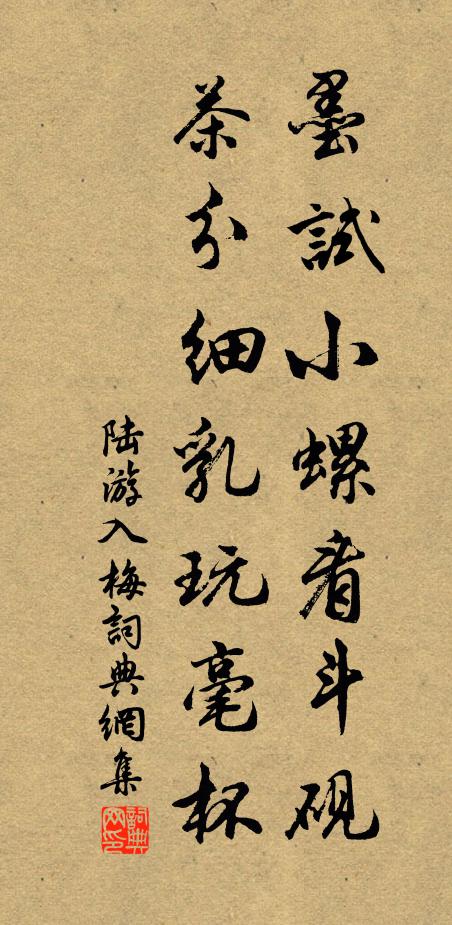 墨試小螺看斗硯
茶分细乳玩毫杯
陆游入梅詞典網集
詞典网印